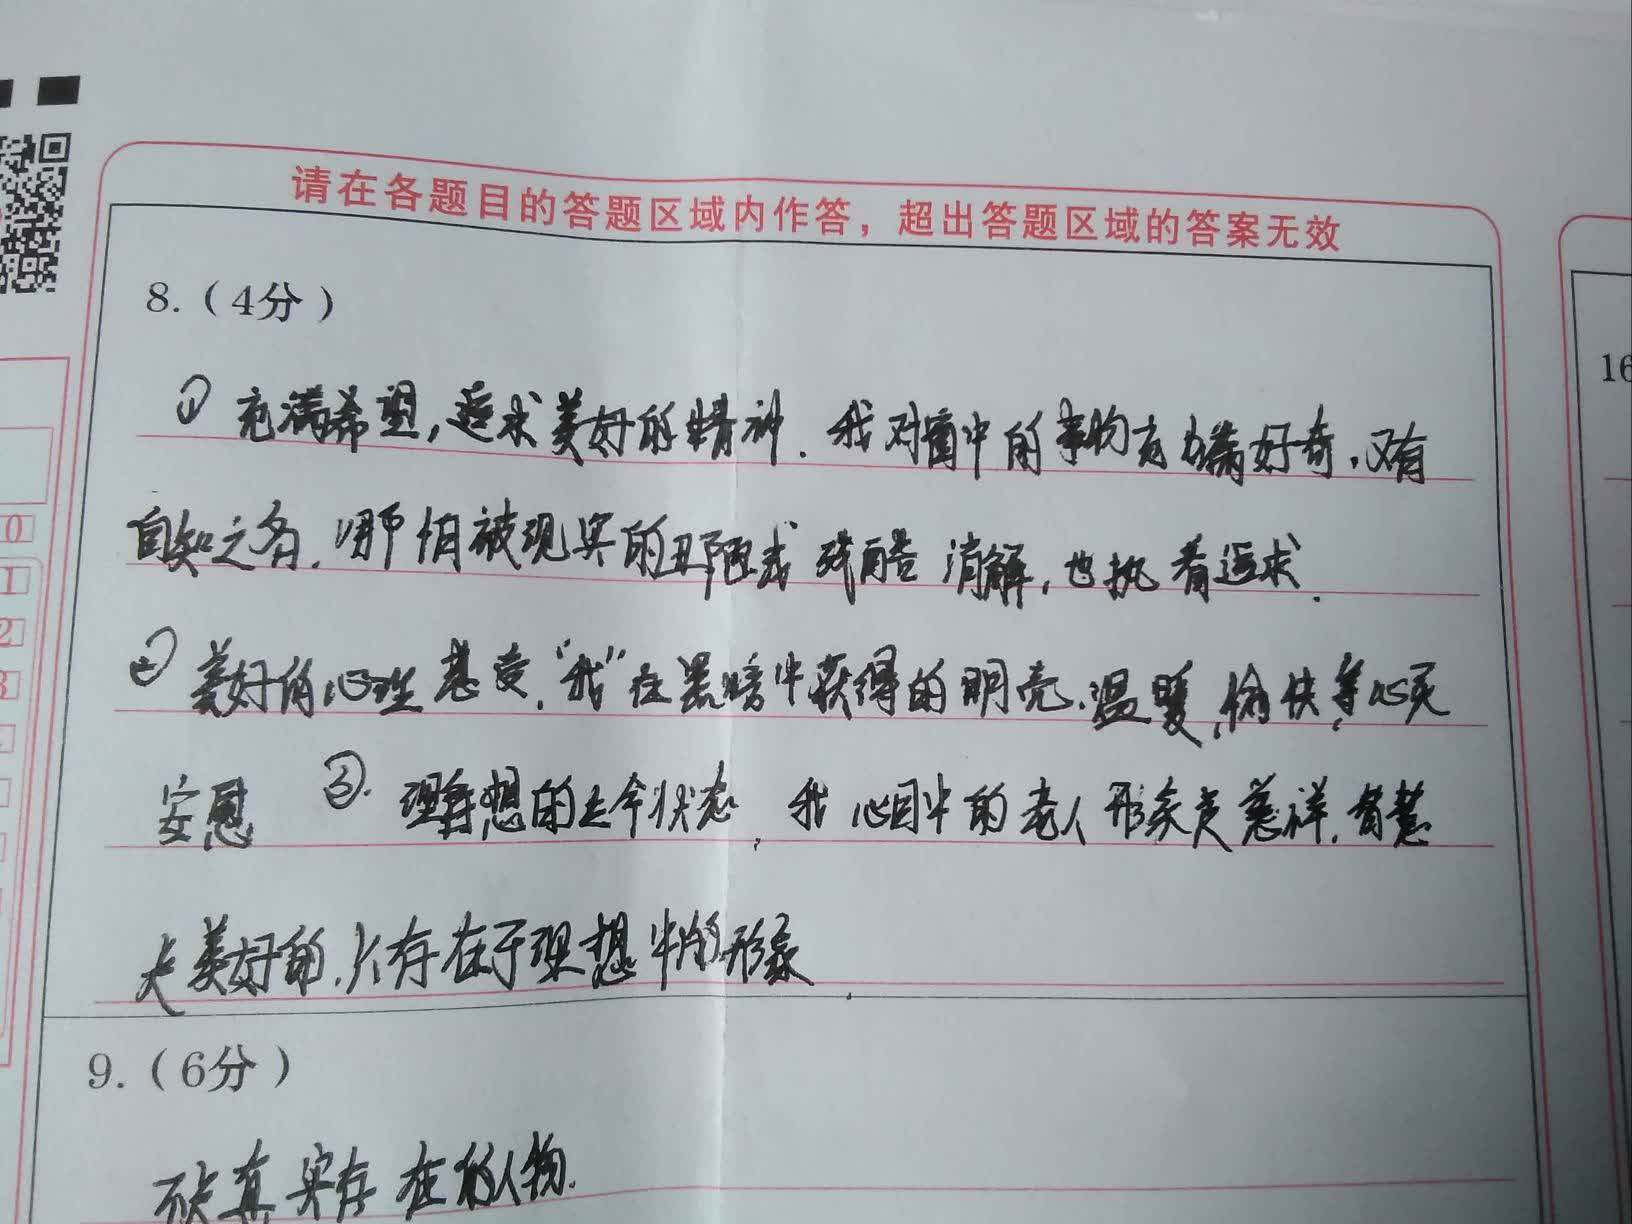 请在各题目的答题区域内作答，超出答题区域的答案无效
8.（4分）
① 充满希望，追求美好的精神．我对窗中的事物充满好奇，又有
自知之名．哪怕被现实的丑陋或残酷消解，也执着追求．
② 美好的心理感受，"我"在黑暗中获得的明亮、温暖、愉快等心灵
安慰 ③．理想的生命状态，我心目中的老人形象是慈祥，智慧
是美好的，只存在于理想中的形象．
9.（6分）
不是真实存在的人物．
16
0
1
2
3